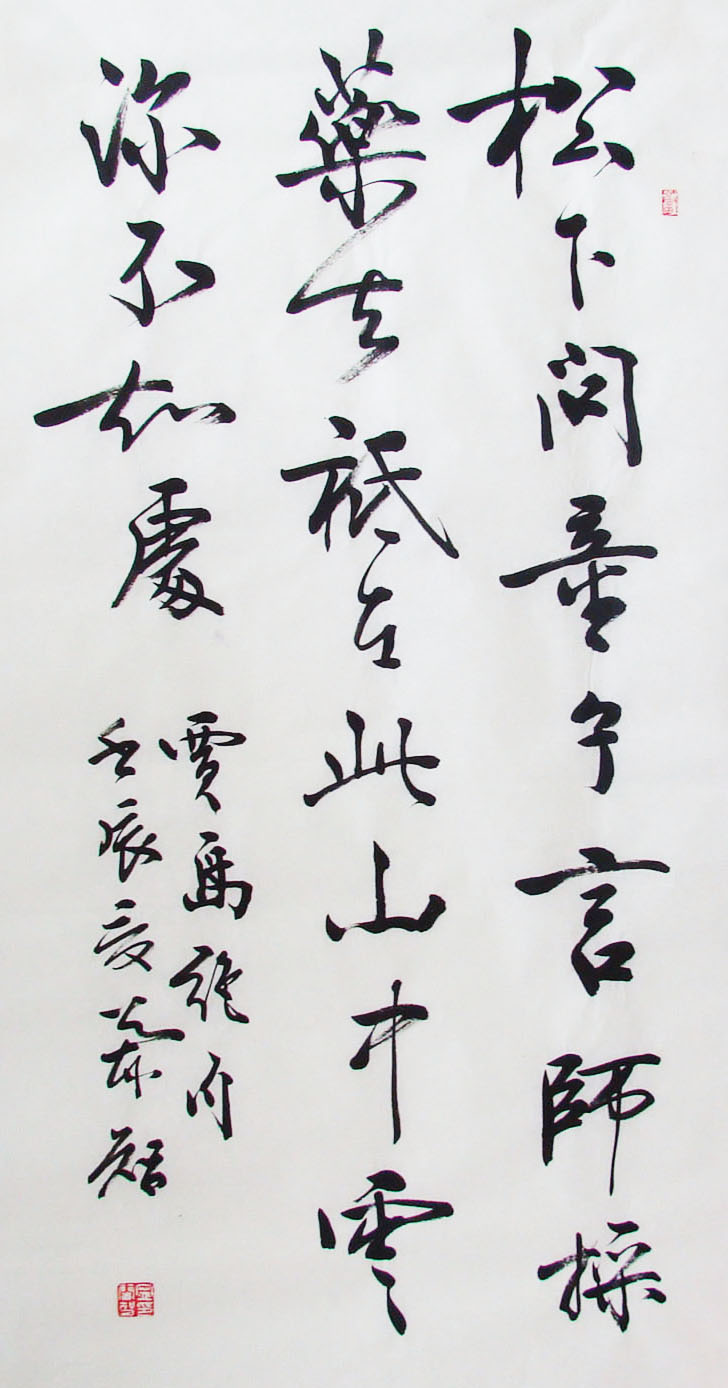 松下問童子言師採
藥去祇在此山中雲
深不知處
賈島絕句
壬辰夏